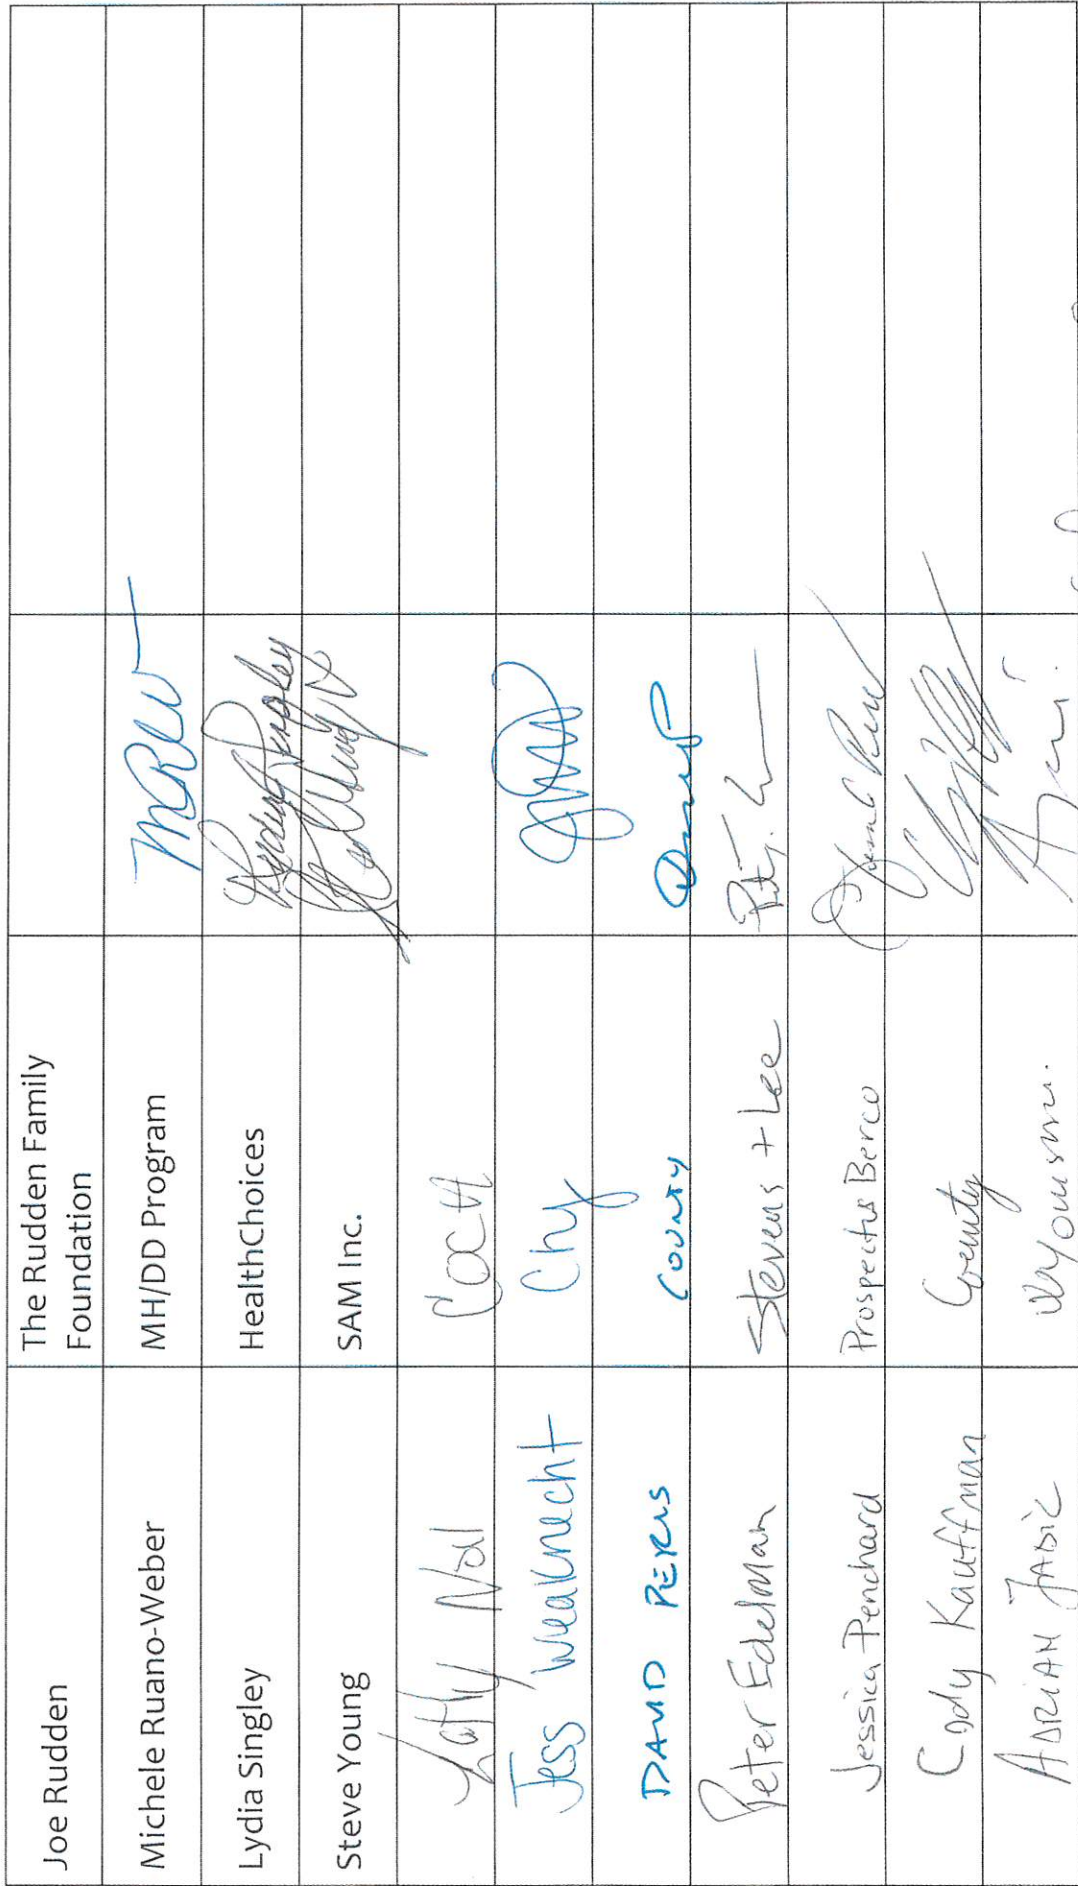 Joe Rudden The Rudden Family
Foundation
Michele Ruano-Weber MH/DD Program MRW
Lydia Singley HealthChoices Lydia Singley
Steve Young SAM Inc.
Kathy Noll COCA
Jess Weaknecht City
DAVID PERIS COUNTY
Peter Edelman Stevens + Lee
Jessica Penchard Prospectus Berco
Cody Kauffman County
ADRIAN JADIC